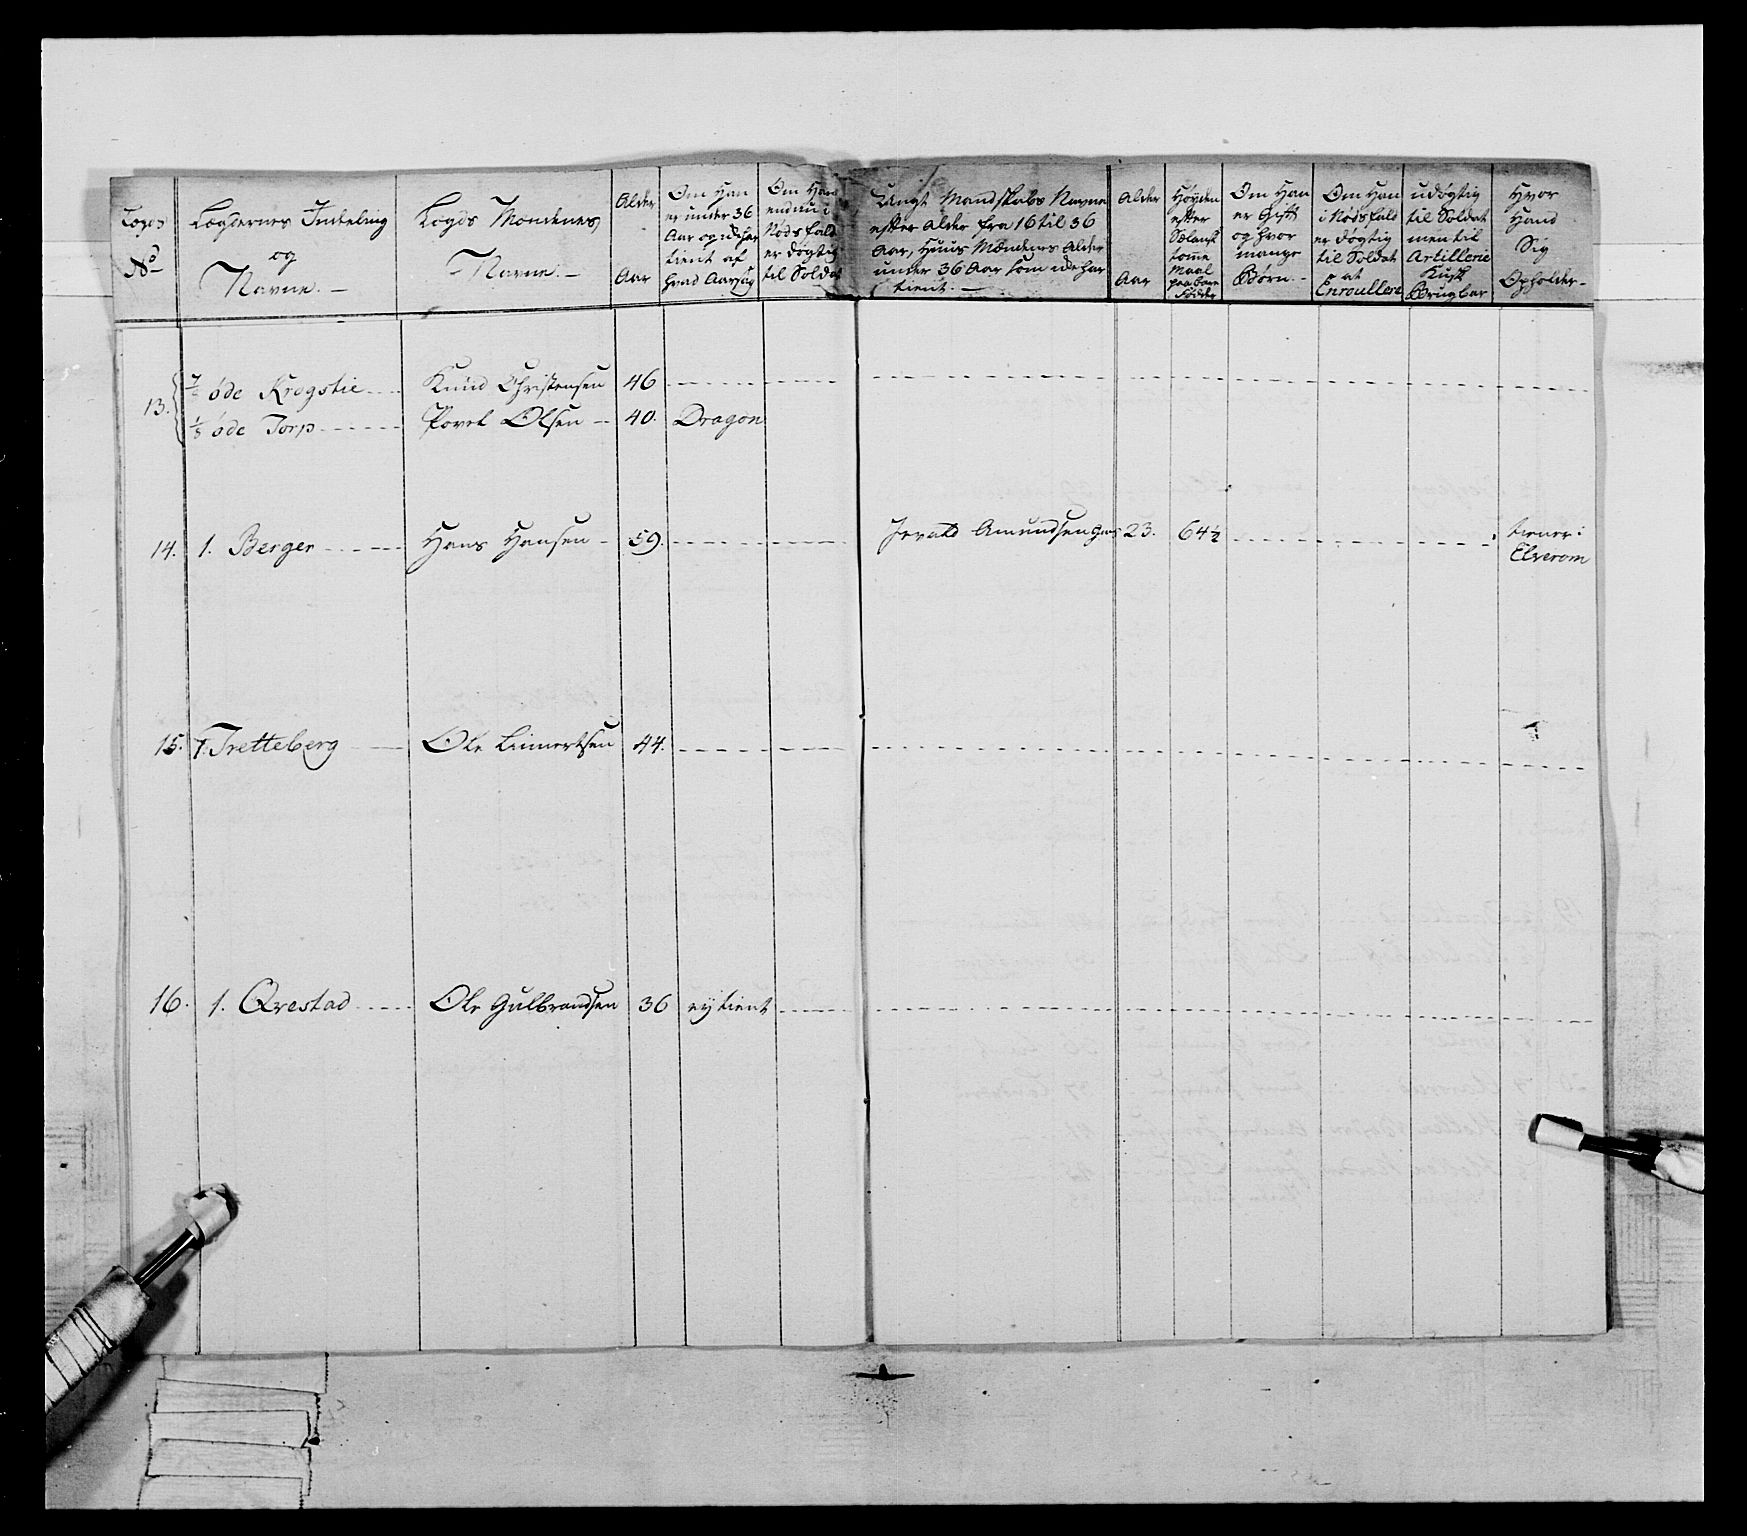 Lægs
No
Lægdernes Indeling
og
Navne. —
Lægds Mændenes
Navne. —
Alder
Aar
Om Han
er under 36
Aar og icke har
tient af
hvad Aarsag
Om Han
endnu i
Nødsfald
er døgtig
til Soldat
Ungt Mandskabs Navne
efter Alder fra 16 til 36
Aar, Huus Mændenes Alder
under 36 Aar som icke har
tient. —
Alder
Aar
Høyden
efter
Sælansk
tomme
Maal
paa bare
Fødder
Om Han
er Gift
og hvor
mange
Børn. -
Om Han
i Nødsfald
er døgtig
til Soldat
at
Enroullere
udøgtig
til Soldat
men til
Artillerie
Kusk
Brugbar
Hvor
Hand
Sig
Opholder -
13. øde Krogstie Knud Christensen 46
1/8 øde Torp Povel Olsen 40. Dragon
14. 1. Berger Hans Hansen 59. Amundsen 23. 64 1/2 tiener i
Elverom
15. 1. Tretteberg Ole 44.
16. 1. Qvestad Ole Gulbrandsen 36 ey tient